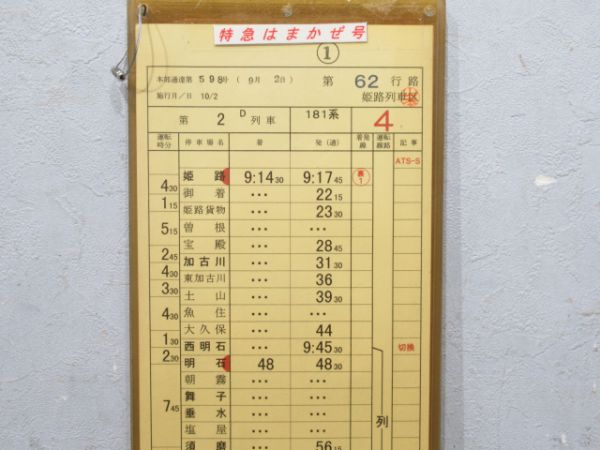 特急はまかぜ号
①
本部通達第 598号 ( 9月 2日) 第 62 行路
施行月/日 10/2 姫路列車区
第 2 D 列車 181系 4
運転時分 停車場名 着 発(通) 着発線 運転線路 記事
ATS-S
姫路 9:14 30 9:17 45 1
4 30 御着 ・・・ 22 15
1 15 姫路貨物 ・・・ 23 30
曽根 ・・・ ・・・
5 15 宝殿 ・・・ 28 45
2 45 加古川 ・・・ 31 30
4 30 東加古川 ・・・ 36
3 30 土山 ・・・ 39 30
魚住 ・・・ ・・・
4 30 大久保 ・・・ 44
1 30 西明石 ・・・ 9:45 30 切換
2 30 明石 48 48 30
朝霧 ・・・ ・・・
舞子 ・・・ ・・・
7 45 垂水 ・・・ ・・・ 列
塩屋 ・・・ ・・・
須磨 ・・・ 56 15